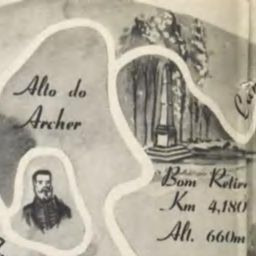 Alto do
Archer
Bom Retiro
Km 4,180
Alt. 660m